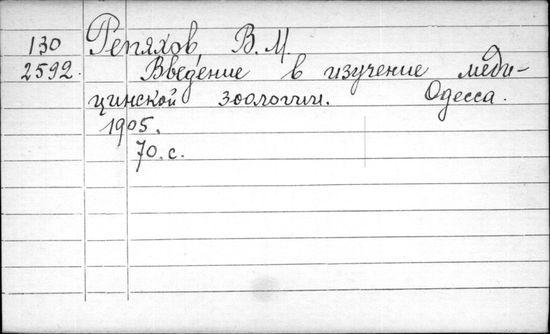 130 Репяхов, В. М.
2592. Введение в изучение меди-
цинской зоологии. Одесса.
1905.
70. с.